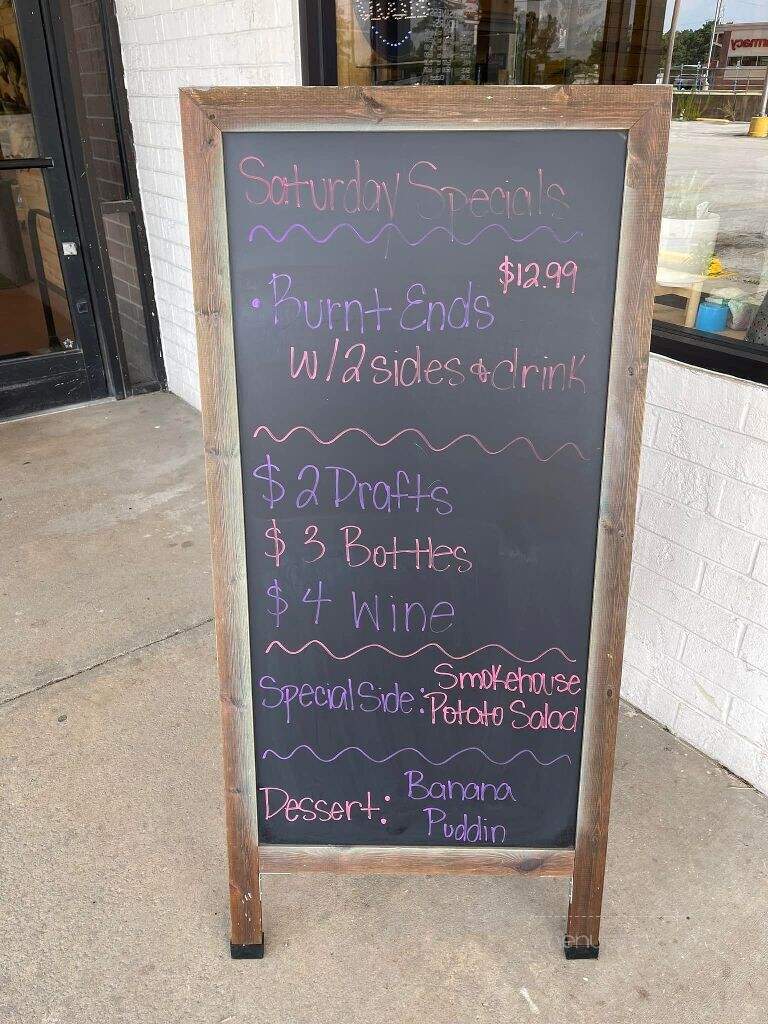 Saturday Specials
$12.99
• Burnt Ends
w/2 sides & drink
$2 Drafts
$3 Bottles
$4 Wine
Special Side: Smokehouse
Potato Salad
Dessert: Banana
Puddin